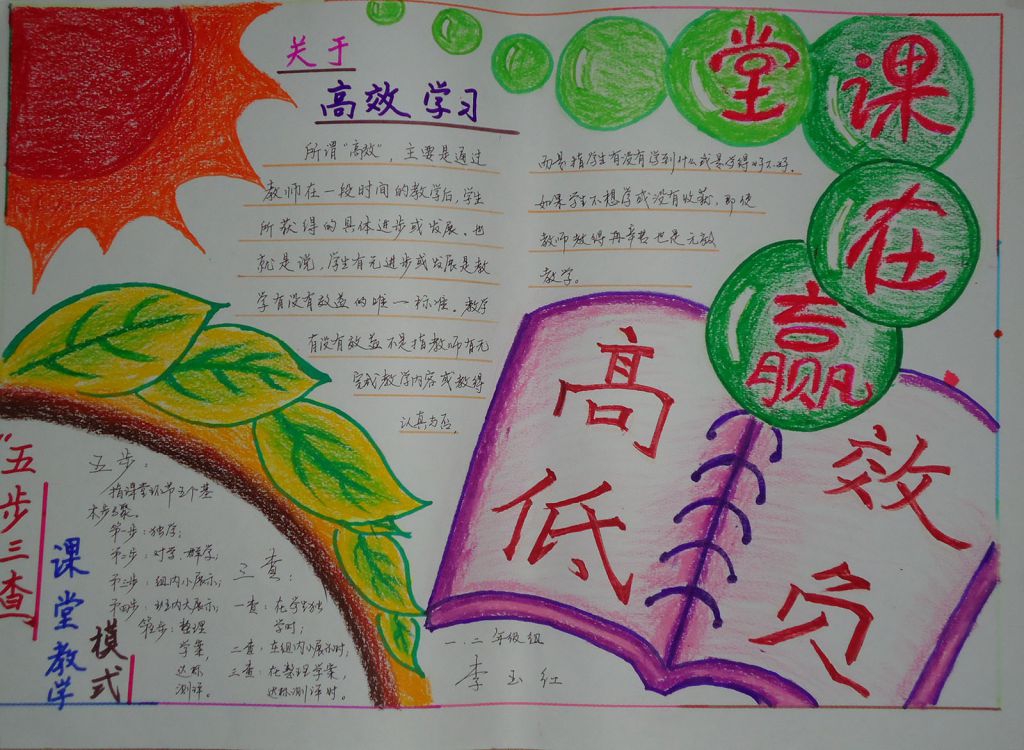 关于
高效学习
所谓“高效”，主要是通过
教师在一段时间的教学后，学生
所获得的具体进步或发展。也
就是说，学生有无进步或发展是教
学有没有效益的唯一标准。教学
有没有效益不是指教师有无
完成教学内容或教得
认真与否，
而是指学生有没有学到什么或是学得好不好。
如果学生不想学或没有收获，即使
教师教得再辛苦也是无效
教学。
赢在课堂
高效
低负
“五步三查”
课堂教学
模式
五步：
指课堂环节五个基
本步骤。
第一步：独学；
第二步：对学、群学；
第三步：组内小展示；
第四步：班内大展示；
第五步：整理
学案，
达标
测评。
三查：
一查：在学生独
学时；
二查：在组内小展示时，
三查：在整理学案，
达标测评时。
一、二年级组
李玉红